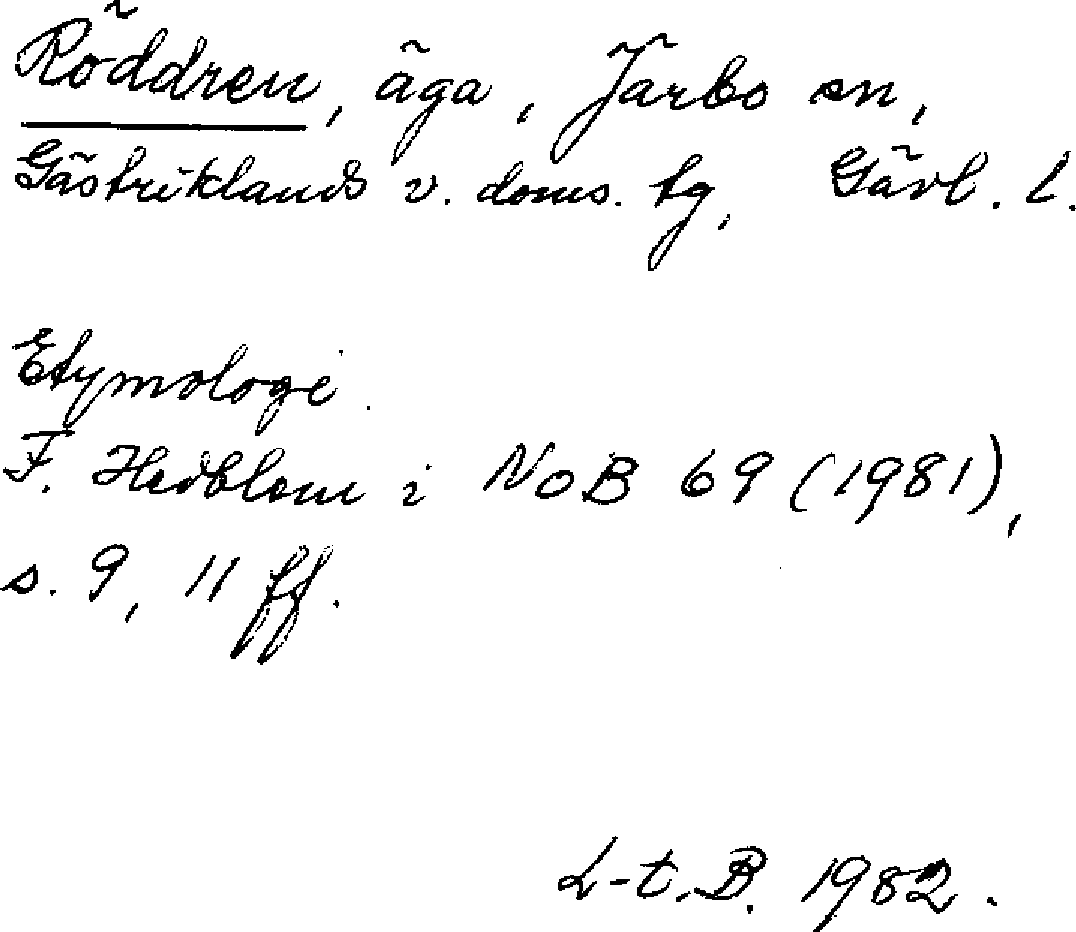 Röddren, äga, Järbo sn,
Gästriklands v. doms. tg, Gävl. l.
Etymologi.
F. Hedblom i NoB 69 (1981),
s. 9, 11 ff.
L-t.B. 1982.